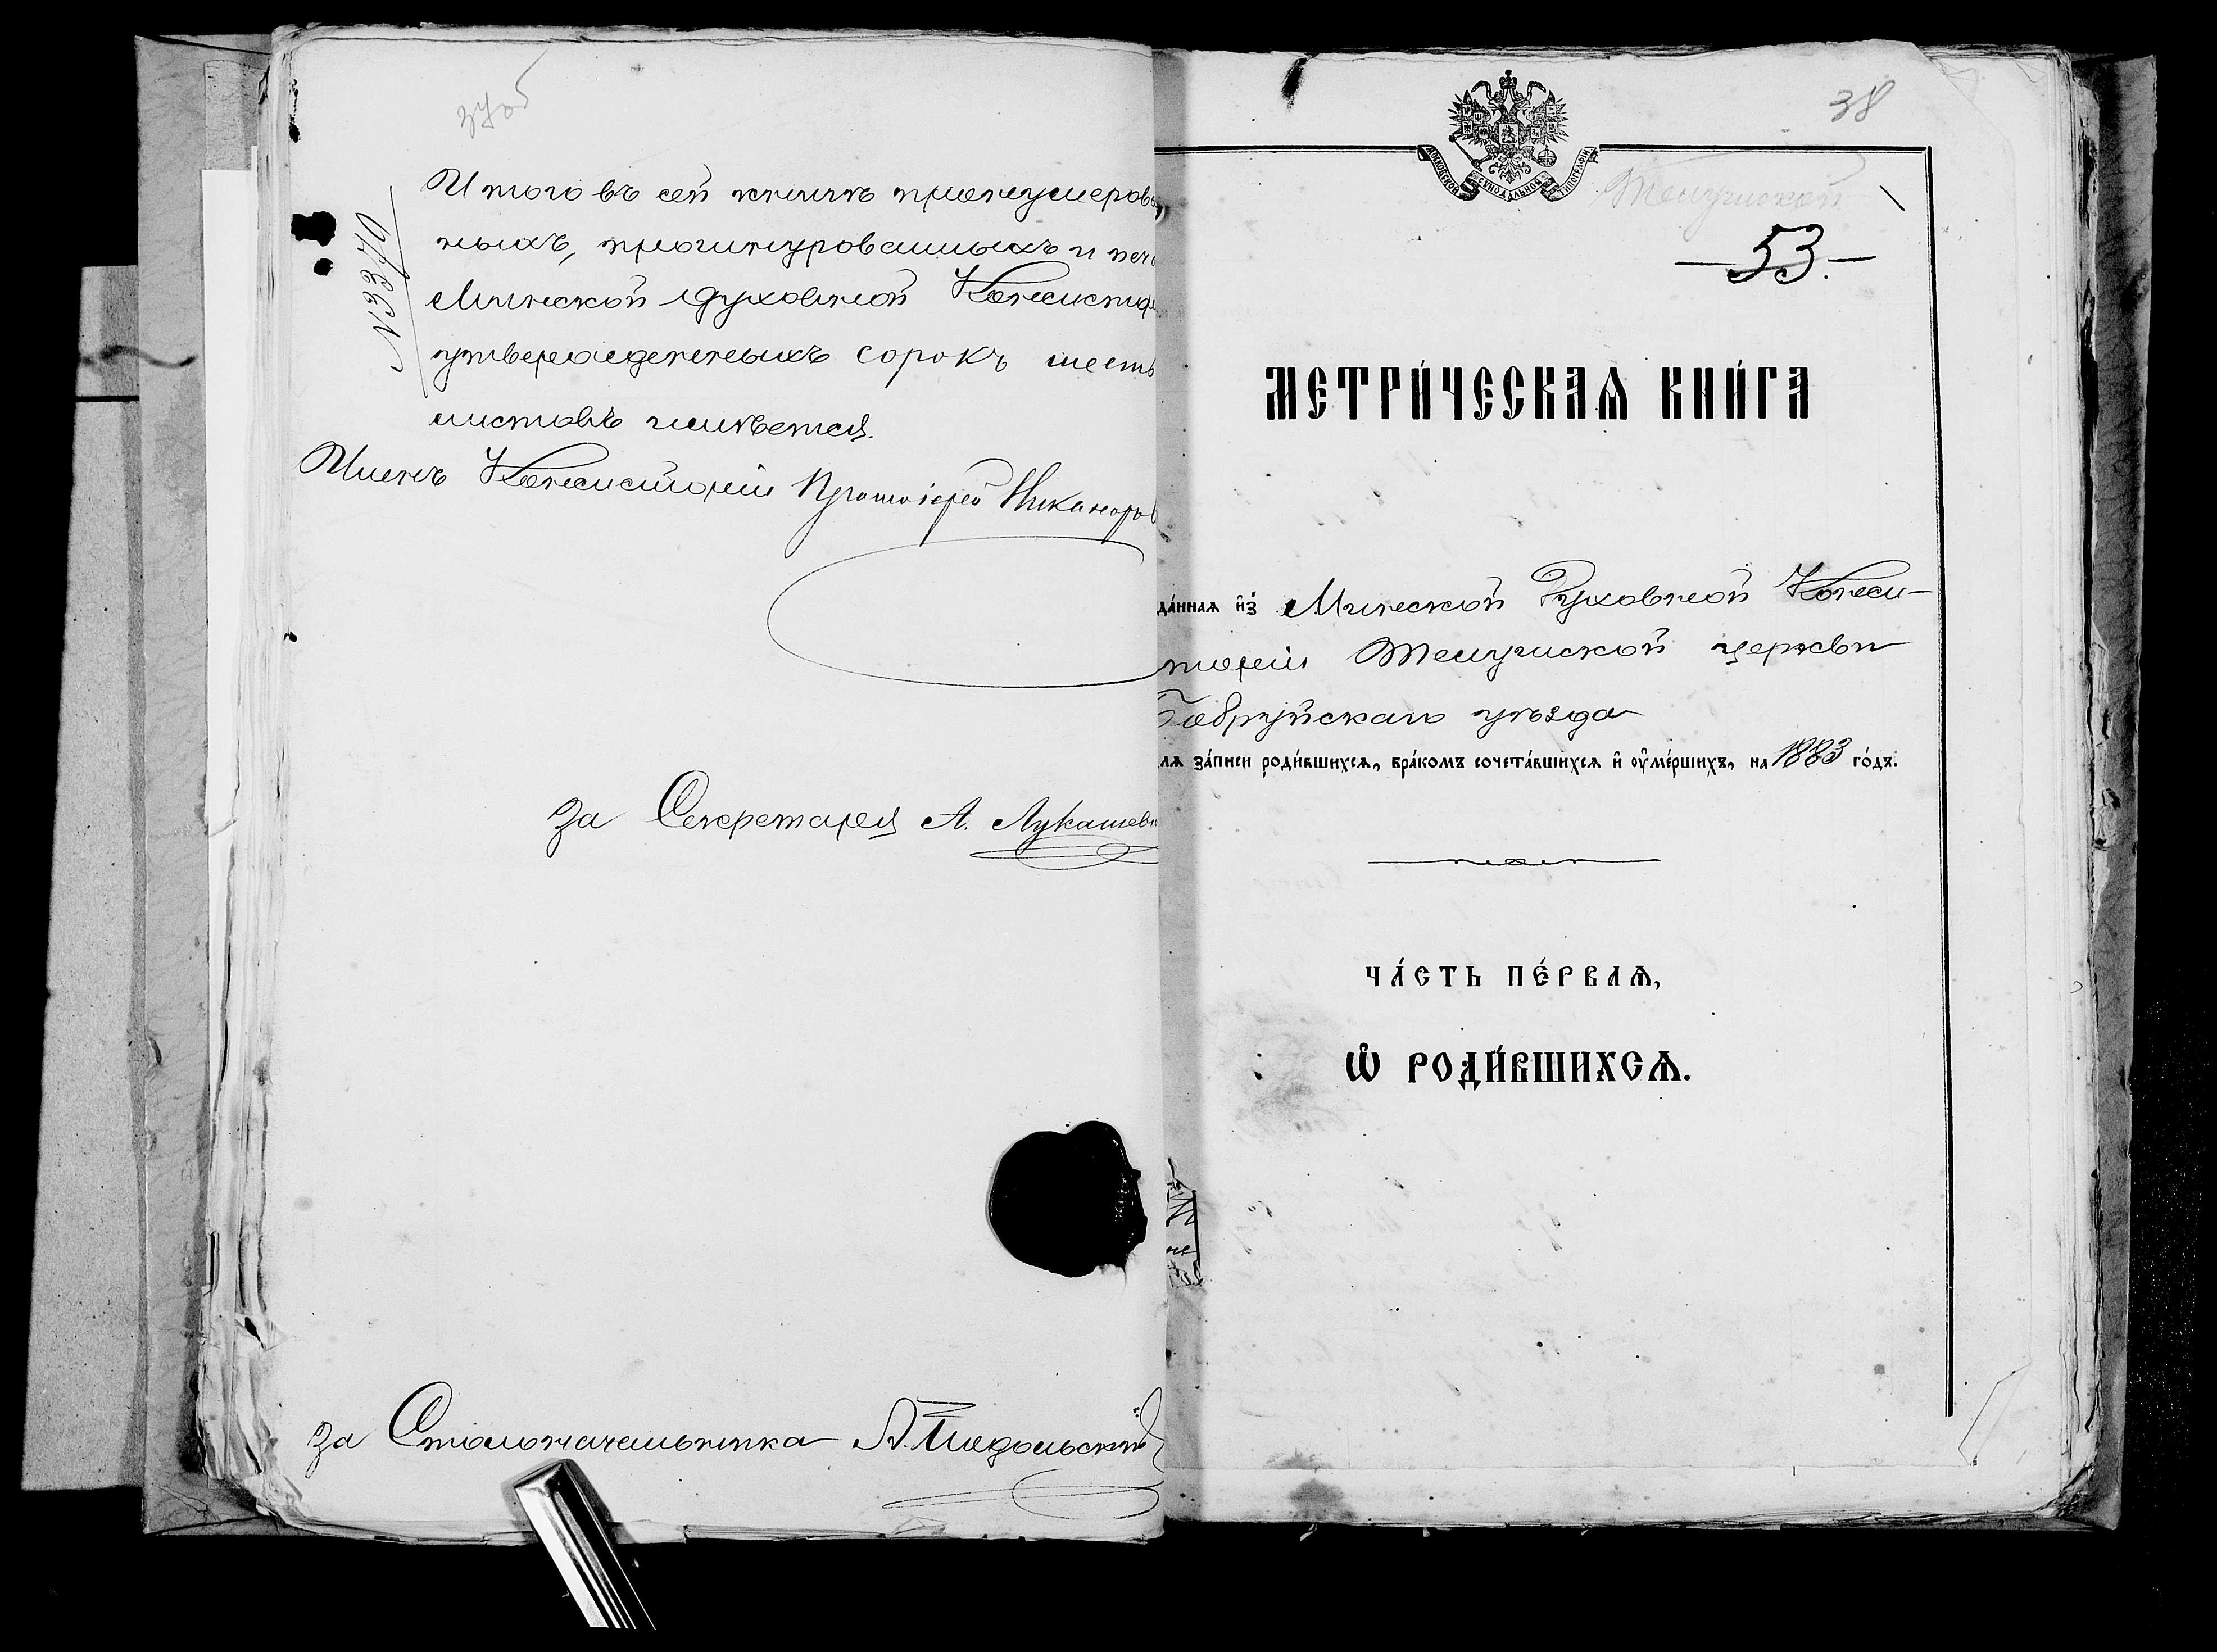 37об
№ 3370
Итого въ сей книгѣ пронумерова
ныхъ, прошнурованныхъ и печ
Минской Духовной Консистор
утвержденныхъ сорокъ шесть
листовъ имѣется.
Членъ Консисторіи Протоіерей Никаноръ
За Секретаря А. Лукашеви
За Столоначальника А. Подольскій
38
МОСКОВСКОЙ СѴНОДАЛЬНОЙ ТИПОГРАФІИ
53.
МЕТРИ́ЧЕСКАѦ КНИ́ГА
да́ннаѧ и҆з̾ Минской Духовной Конси-
торіи церкви
Бобруйскаго уѣзда
лѧ за́писи роди́вшихсѧ, бра́комъ сочета́вшихсѧ и҆ ᲂу҆ме́ршихъ, на 1883 го́дъ.
ЧА́СТЬ ПЕ́РВАѦ,
Ѽ РОДИ́ВШИХСѦ.